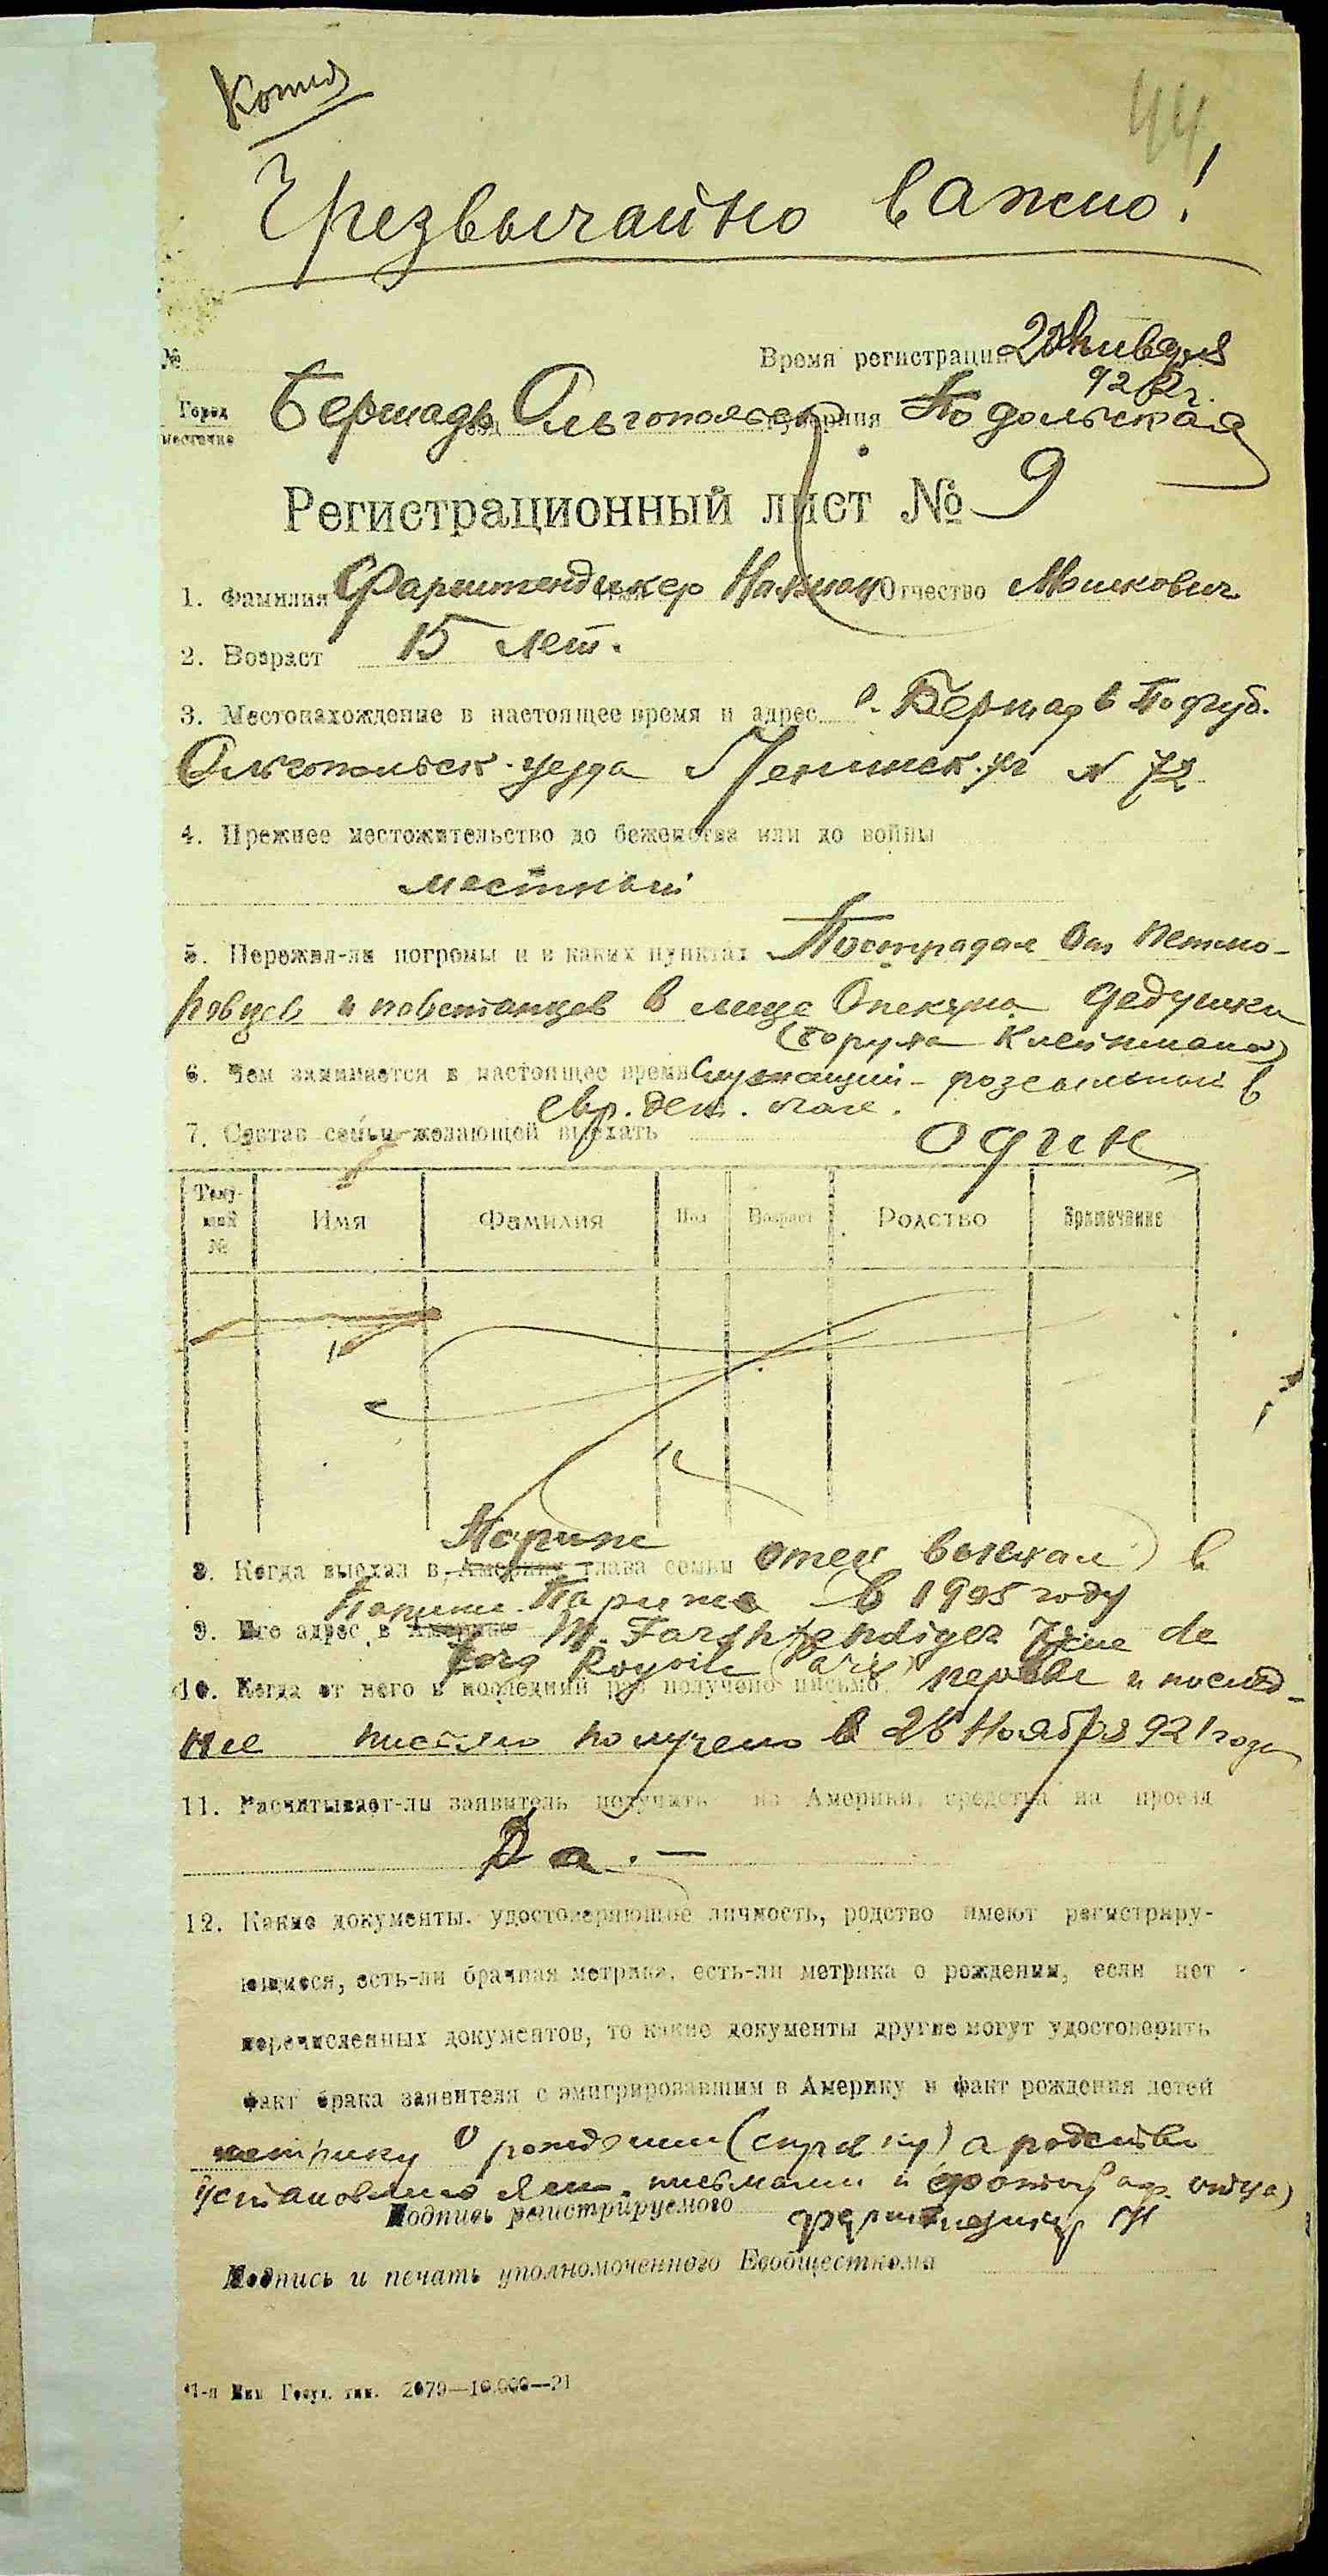 Копия
44
Чрезвычайно важно!
№ Время регистрации 20 Января
922 г.
Город
местечко Бершадь Ольгопольск губерния Подольская
Регистрационный лист № 9
1. Фамилия Фарштендикер Нахман Отчество Мошкович
2. Возраст 15 лет.
3. Местонахождение в настоящее время и адрес Бершадь Под губ.
Ольгопольск. уезда Ленинск. ул № 72
4. Прежнее местожительство до беженства или до войны
местный
5. Пережил-ли погромы и в каких пунктах Пострадал от петлю-
ровцев и повстанцев в лице Опекуна дедушки
(Боруха Клейнмана)
6. Чем занимается в настоящее время Служащий - розсыльный в
евр. дет.
7. Состав семьи желающей выехать один
Теку-
щий
№ Имя Фамилия Пол Возраст Родство Примечание
Париж
8. Когда выехал в Америку глава семьи отец выехал в
Париж в 1905 году
9. Его адрес в Америке M. Farshtendiger de
Paris
10. Когда от него в последний раз получено письмо первое и послед-
нее письмо получено в 26 Ноября 921 года
11. Расчитывает-ли заявитель получить из Америки средства на проезд
Да. —
12. Какие документы, удостоверяющие личность, родство имеют регистриру-
ющиеся, есть-ли брачная метрика, есть-ли метрика о рождении, если нет
перечисленных документов, то какие документы другие могут удостоверить
факт брака заявителя с эмигрировавшим в Америку и факт рождения детей
метрику о рождении (справку) а родство
установлено письмами и фотограф. отца)
Подпись регистрируемого
Подпись и печать уполномоченного Евобщесткома
Госуд. тип. 2079—10.000—21